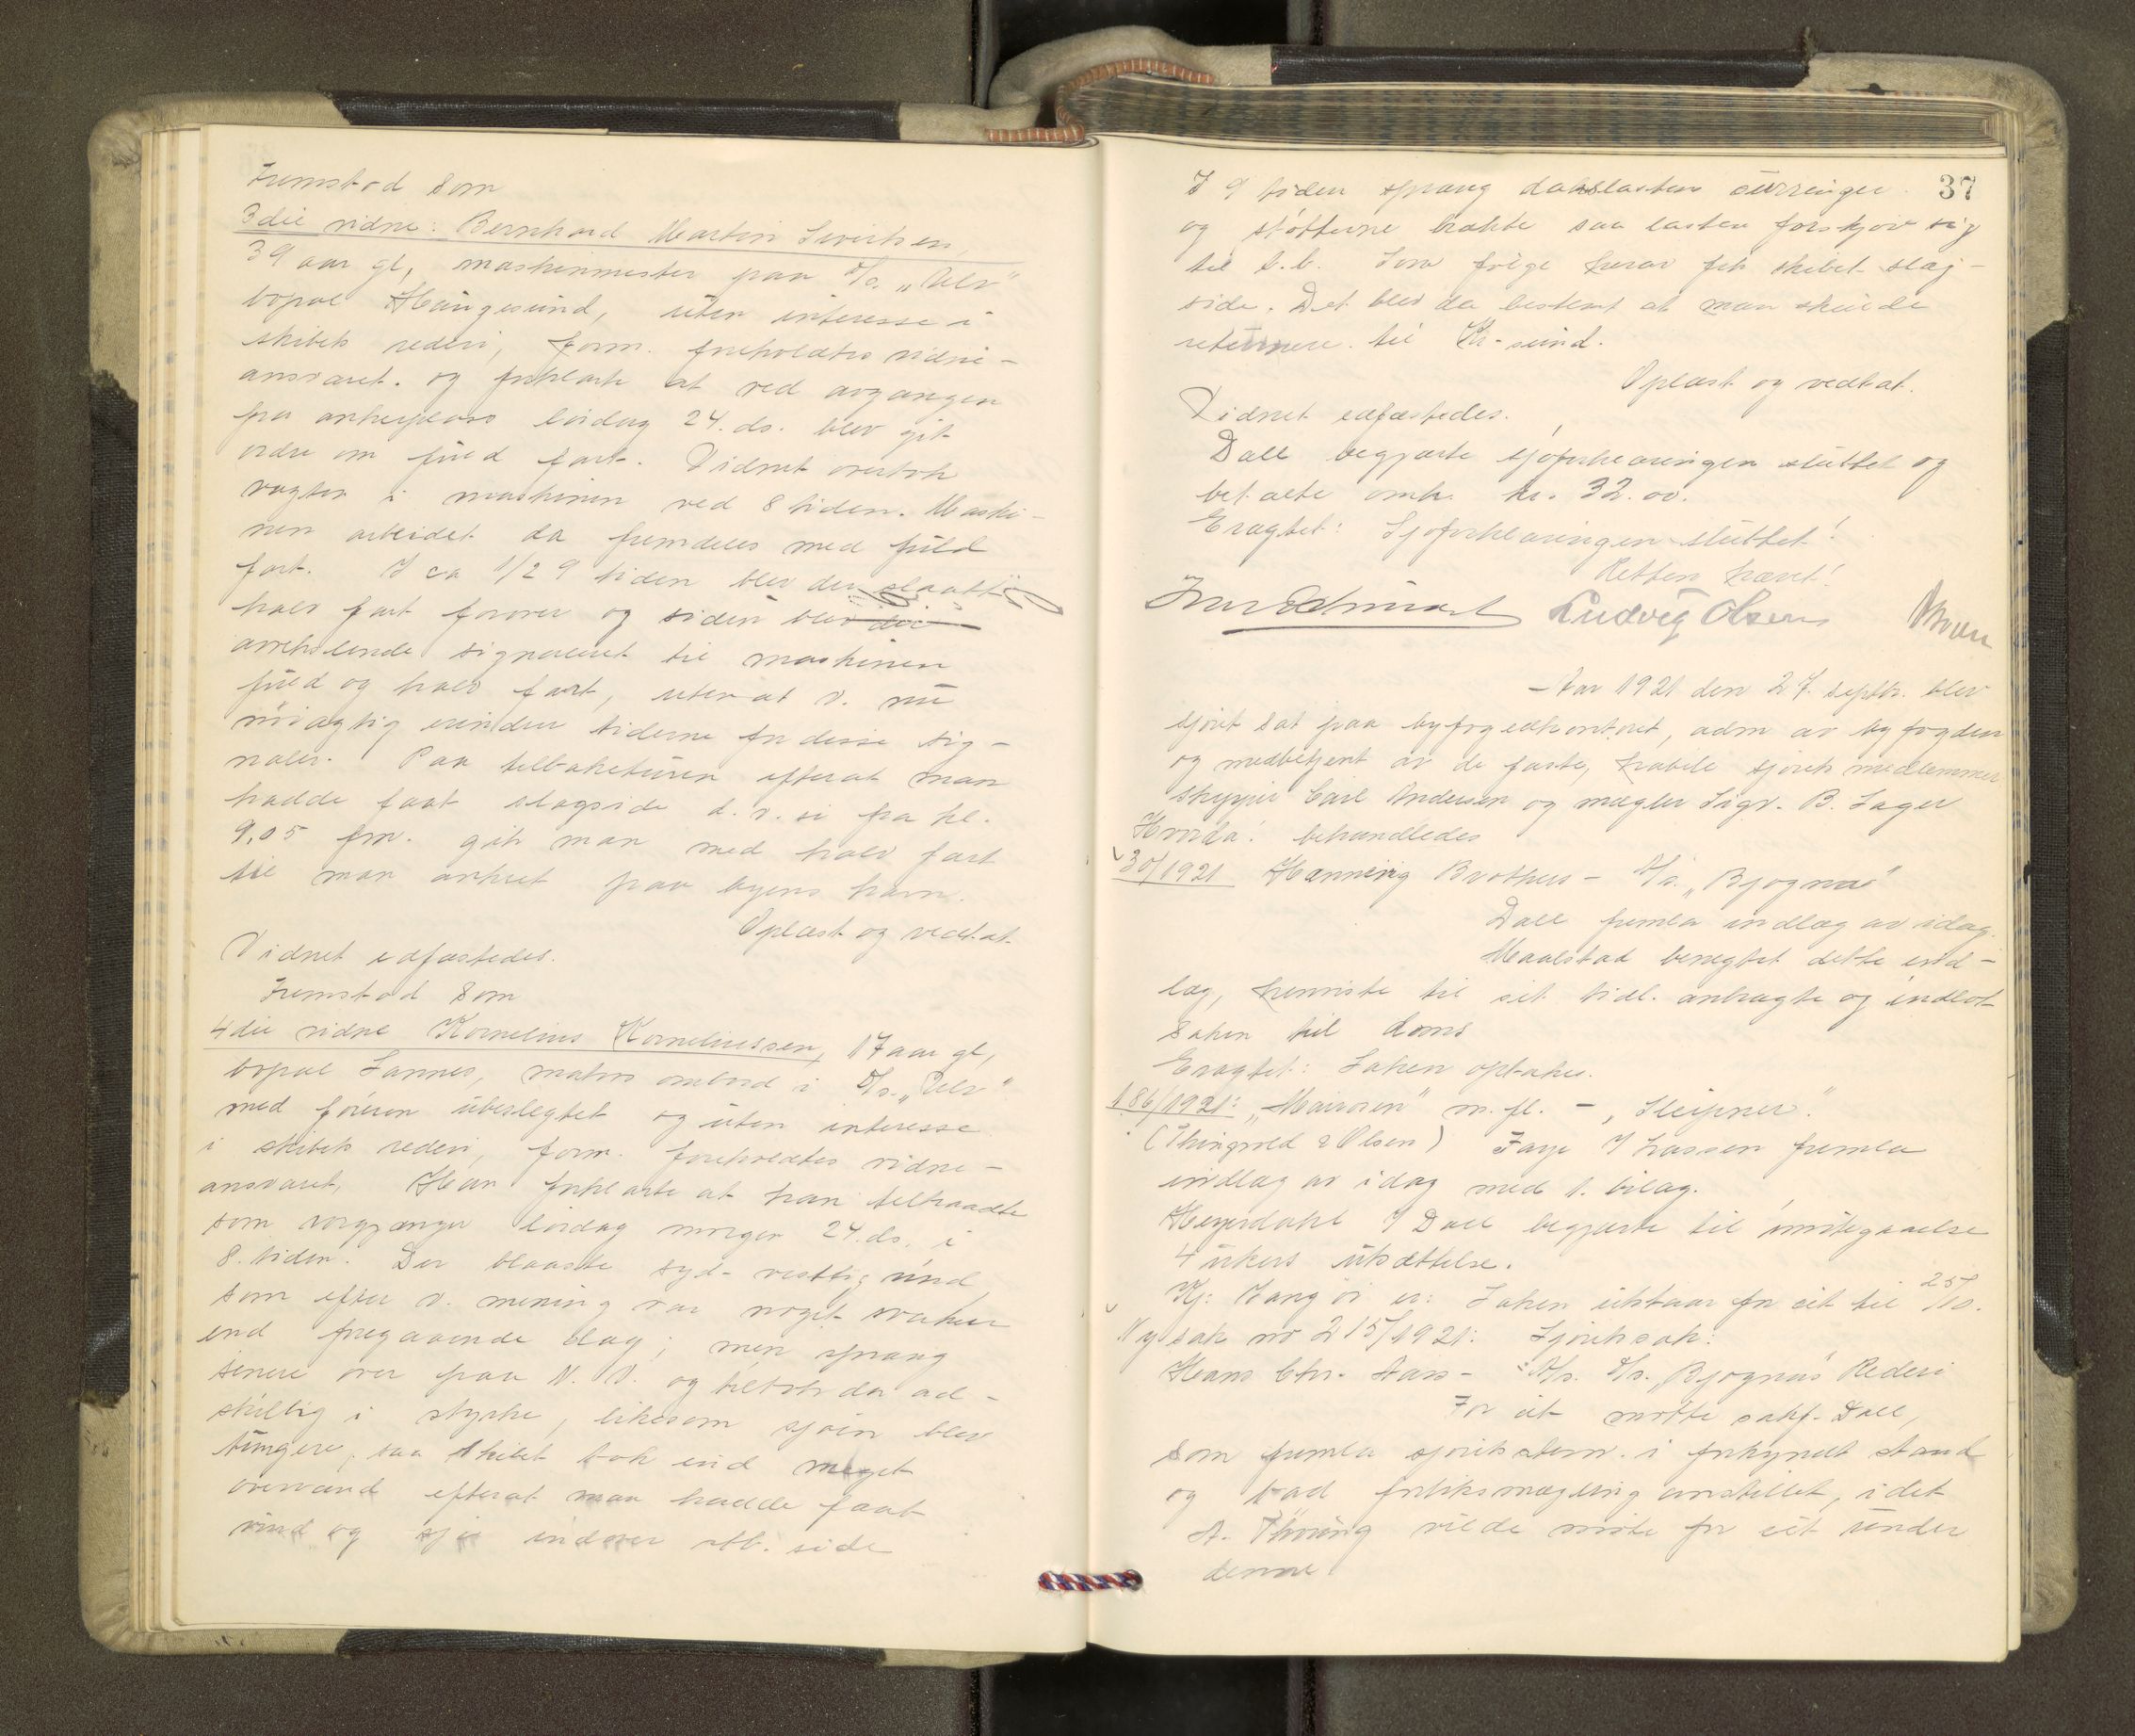 Fremstod som
3die vidne: Bernhard Martin Sivertsen,
39 aar gl, maskinmester paa D/S. „Ulv"
bopæl Haugesund, uten interesse i
skibets rederi, form. foreholdtes vidne-
ansvaret. og forklarte at ved avgangen
fra ankerplass lördag 24. ds. blev git
ordre om fuld fart. Vidnet overtok
vagten i maskinen ved 8 tiden. Maski-
nen arbeidet da fremdeles med fuld
fart. I ca 1/2 9 tiden blev der slaatt
halv fart forover og siden blev der
avvekslende signaleret til maskinen
fuld og halv fart, uten at v. nu
nöiagtig erindrer tiderne for disse sig-
naler. Paa tilbaketuren efterat man
hadde faat slagside d.v.si fra kl.
9,05 fm. gik man med halv fart
til man ankret paa byens havn.
Oplæst og vedtat.
Vidnet edfæstedes.
Fremstod som
4die vidne Kornelius Korneliussen, 17 aar gl,
bopæl Sannes, matros ombord i D/S. „Ulv"
med föreren ubeslegtet og uten interesse
i skibets rederi, form. foreholdtes vidne-
ansvaret. Han forklarte at han tiltraadte
som rorgjænger lördag morgen 24. ds. i
8. tiden. Der blaaste syd-vestlig vind
som efter v. mening var noget svakere
end foregaaende dag; men sprang
senere over paa N.V. og tiltok da ad-
skillig i styrke, likesom sjöen blev
tungere, saa skibet tok ind meget
overvand efterat man hadde faat
vind og sjö indover stb. side
37
I 9 tiden sprang dækslastens surringer
og stötterne brækte saa lasten forskjöv sig
til b.b. Som fölge herav fik skibet slag-
side. Det blev da bestemt at man skulde
returnere til Kr-sund.
Oplæst og vedtat.
Vidnet edfæstedes.
Dall begjærte sjöforklaringen sluttet og
betalte omk. kr. 32.00.
Eragtet: Sjöforklaringen sluttet!
Retten hævet!
Ludvig Olsen
Aar 1921 den 27. septbr. blev
sjöret sat paa byfogedkontoret, adm av byfogden
og medbetjent av de faste, habile sjöretsmedlemmer
skipper Carl Andersen og mægler Sigv. B. Sager
Hvorda: behandledes
30/1921 Hanning Brothers - D/S. „Bjognæs"
Dall fremla indlæg av idag.
Maalstad benegtet dette ind-
læg, henviste til sit tidl. anbragte og indlot
saken til doms
Eragtet: Saken optakes.
186/1921: „Mairosen" m. fl. - „Sleipner".
(Thingvold & Olsen) Faye I hassen fremla
indlæg av idag med 1. bilag.
Heyerdahl I Dall begjærte til imötegaaelse
4 ukers utsættelse.
Kj: Saken utstaar for ret til 25/10.
Ny sak no 215/1921: Sjöretssak:
Hans Chr. Aass - A/S. D/S. „Bjognæs" Rederi
For ret mötte sakf. Dall,
som fremla sjöretsstevn. i forkyndt stand
og bad forliksmægling anstillet, idet
A. Thöring vilde möte for ret under
denne